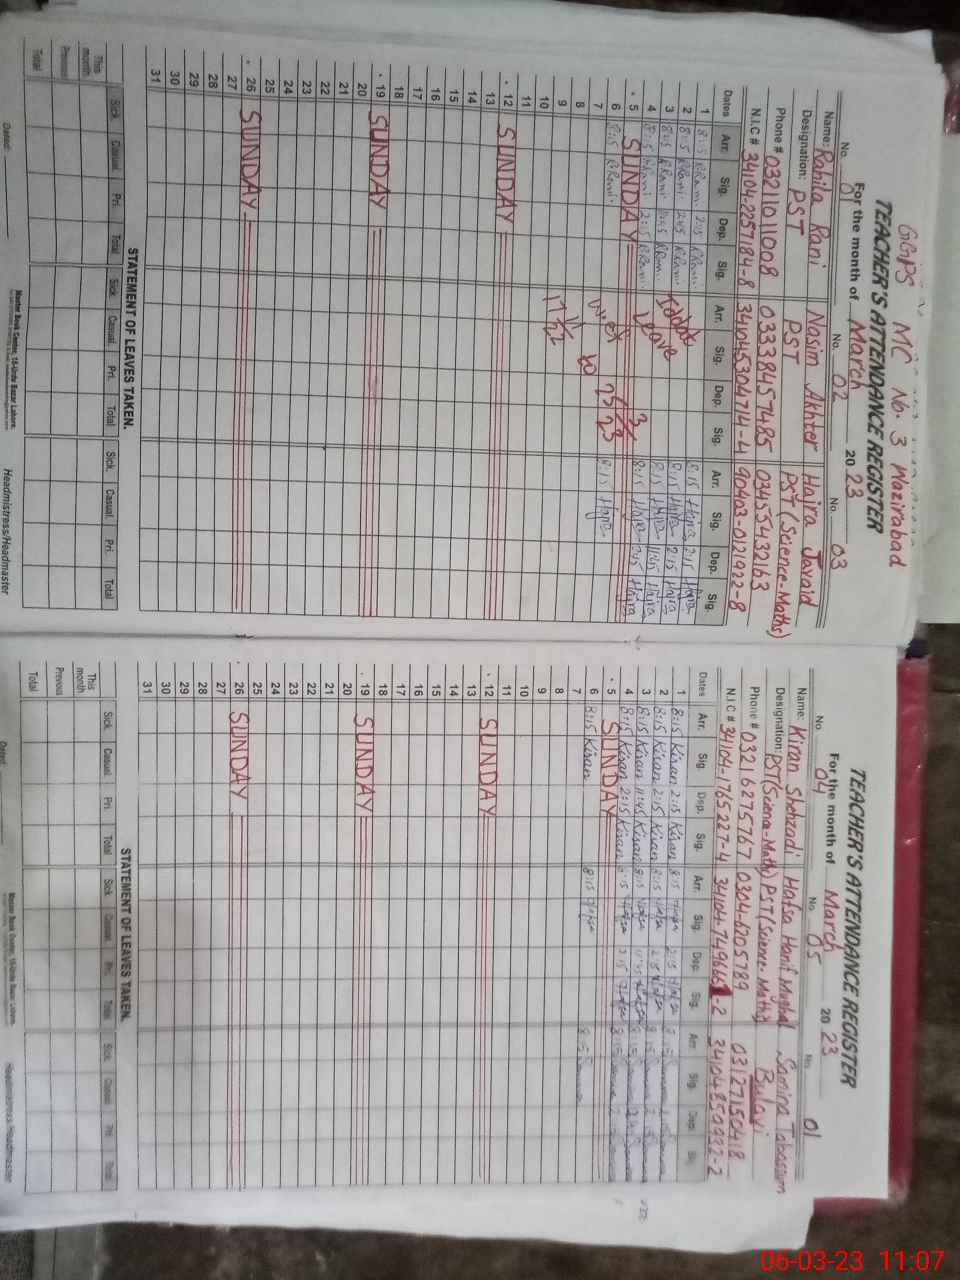 GGPS MC No. 3 Wazirabad
TEACHER'S ATTENDANCE REGISTER
For the month of March 2023
No. 01 No. 02 No. 03
Name: Rahila Rani Nasim Akhter Hajra Javaid
Designation: PST PST PST (Science-Maths)
Phone # 03211011008 03338457485 03455432163
N.I.C # 34104-2257184-8 341045304714-4 90403-0121922-8
Dates Arr. Sig. Dep. Sig. Arr. Sig. Dep. Sig. Arr. Sig. Dep. Sig.
1 8:15 RRani 2:15 RRani 8:15 Hajra 2:15 Hajra
2 8:15 RRani 2:15 RRani 8:15 Hajra 2:15 Hajra
3 8:15 RRani 11:45 RRani Iddat 8:15 Hajra 11:45 Hajra
4 8:15 RRani 2:15 RRani Leave 8:15 Hajra 2:15 Hajra
5 SUNDAY
6 8:15 RRani w.e.f 8:15 Hajra
7
8
9
10
11
12 SUNDAY
13
14
15
16
17
18
19 SUNDAY
20
21
22
23
24
25
26 SUNDAY
27
28
29
30
31
STATEMENT OF LEAVES TAKEN.
Sick Casual Pri. Total Sick. Casual. Pri. Total Sick. Casual. Pri. Total
This month
Previous
Total
Master Book Center, 16-Urdu Bazar Lahore.
Dated: Headmistress/Headmaster
TEACHER'S ATTENDANCE REGISTER
For the month of March 2023
No. 04 No. 05 No. 01
Name: Kiran Shehzadi Hafsa Hanif Mughal Samina Tabassum
Designation: PST(Science-Math) PST(Science-Maths) Bulavi
Phone # 03216275767 0304-6205789 03127150418
N.I.C # 34104-1765227-4 34104-7496661-2 34104850932-2
Dates Arr. Sig Dep. Sig. Arr. Sig. Dep. Sig. Arr. Sig. Dep. Sig.
1 8:15 Kiran 2:15 Kiran 8:15 Hafsa 2:15 Hafsa 8:15
2 8:15 Kiran 2:15 Kiran 8:15 Hafsa 2:15 Hafsa 8:15
3 8:15 Kiran 11:45 Kiran 8:15 Hafsa 11:45 Hafsa 8:15
4 8:15 Kiran 2:15 Kiran 8:15 Hafsa 2:15 Hafsa 8:15
5 SUNDAY
6 8:15 Kiran 8:15 Hafsa 8:15
7
8
9
10
11
12 SUNDAY
13
14
15
16
17
18
19 SUNDAY
20
21
22
23
24
25
26 SUNDAY
27
28
29
30
31
STATEMENT OF LEAVES TAKEN.
Sick Casual Pri. Total Sick. Casual. Pri. Total Sick. Casual. Pri. Total
This month
Previous
Total
Master Book Center, 16-Urdu Bazar Lahore.
Dated: Headmistress/Headmaster
06-03-23 11:07